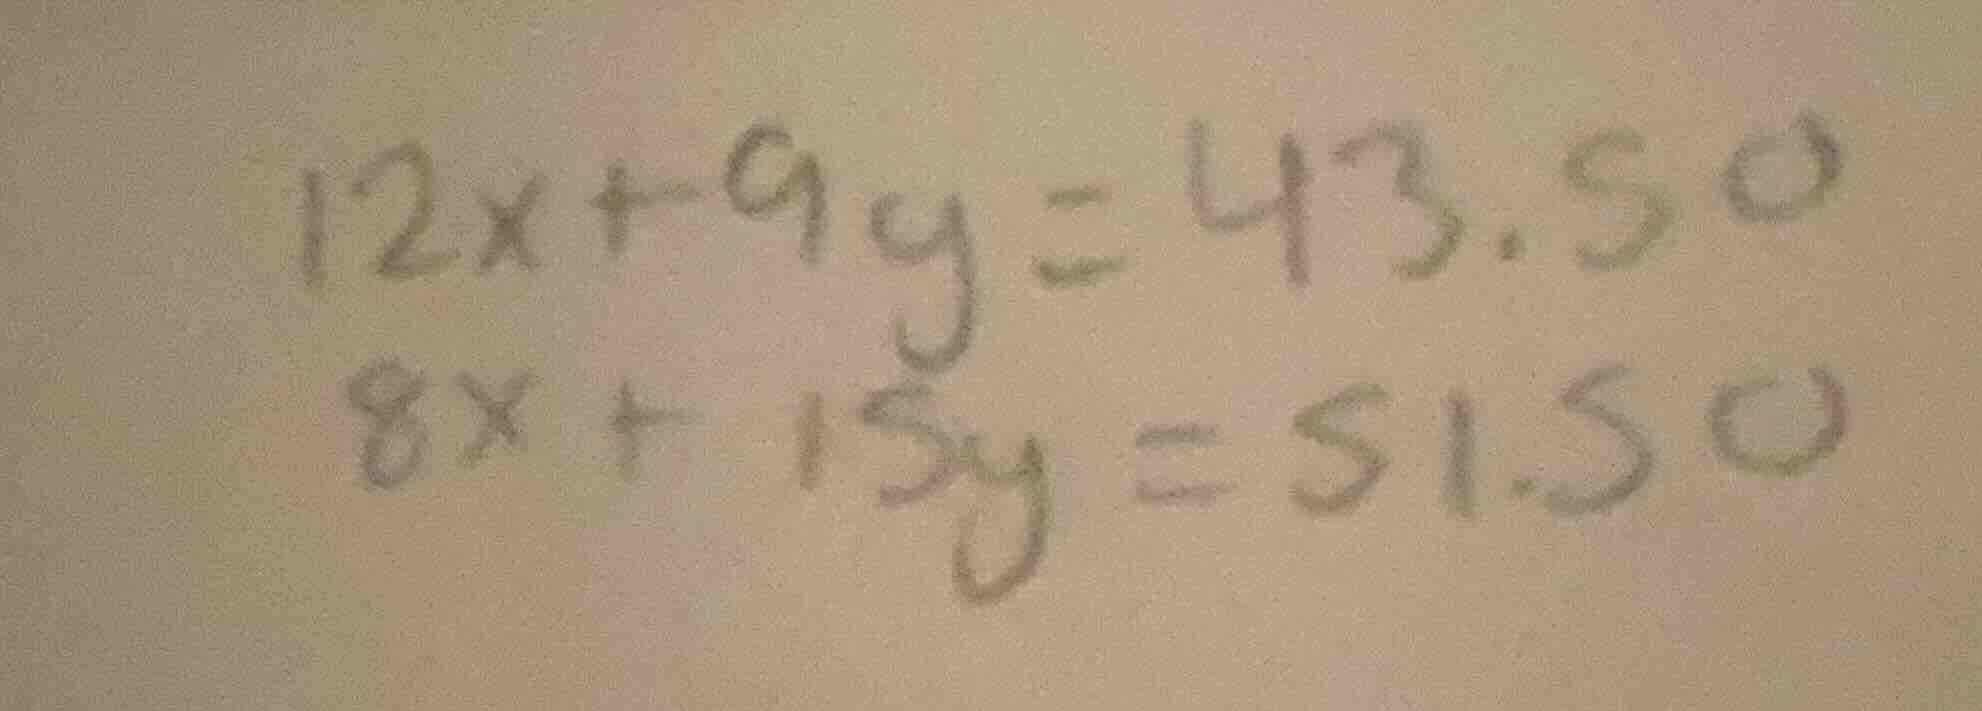 12x+9y=43.50
8x+15y=51.50